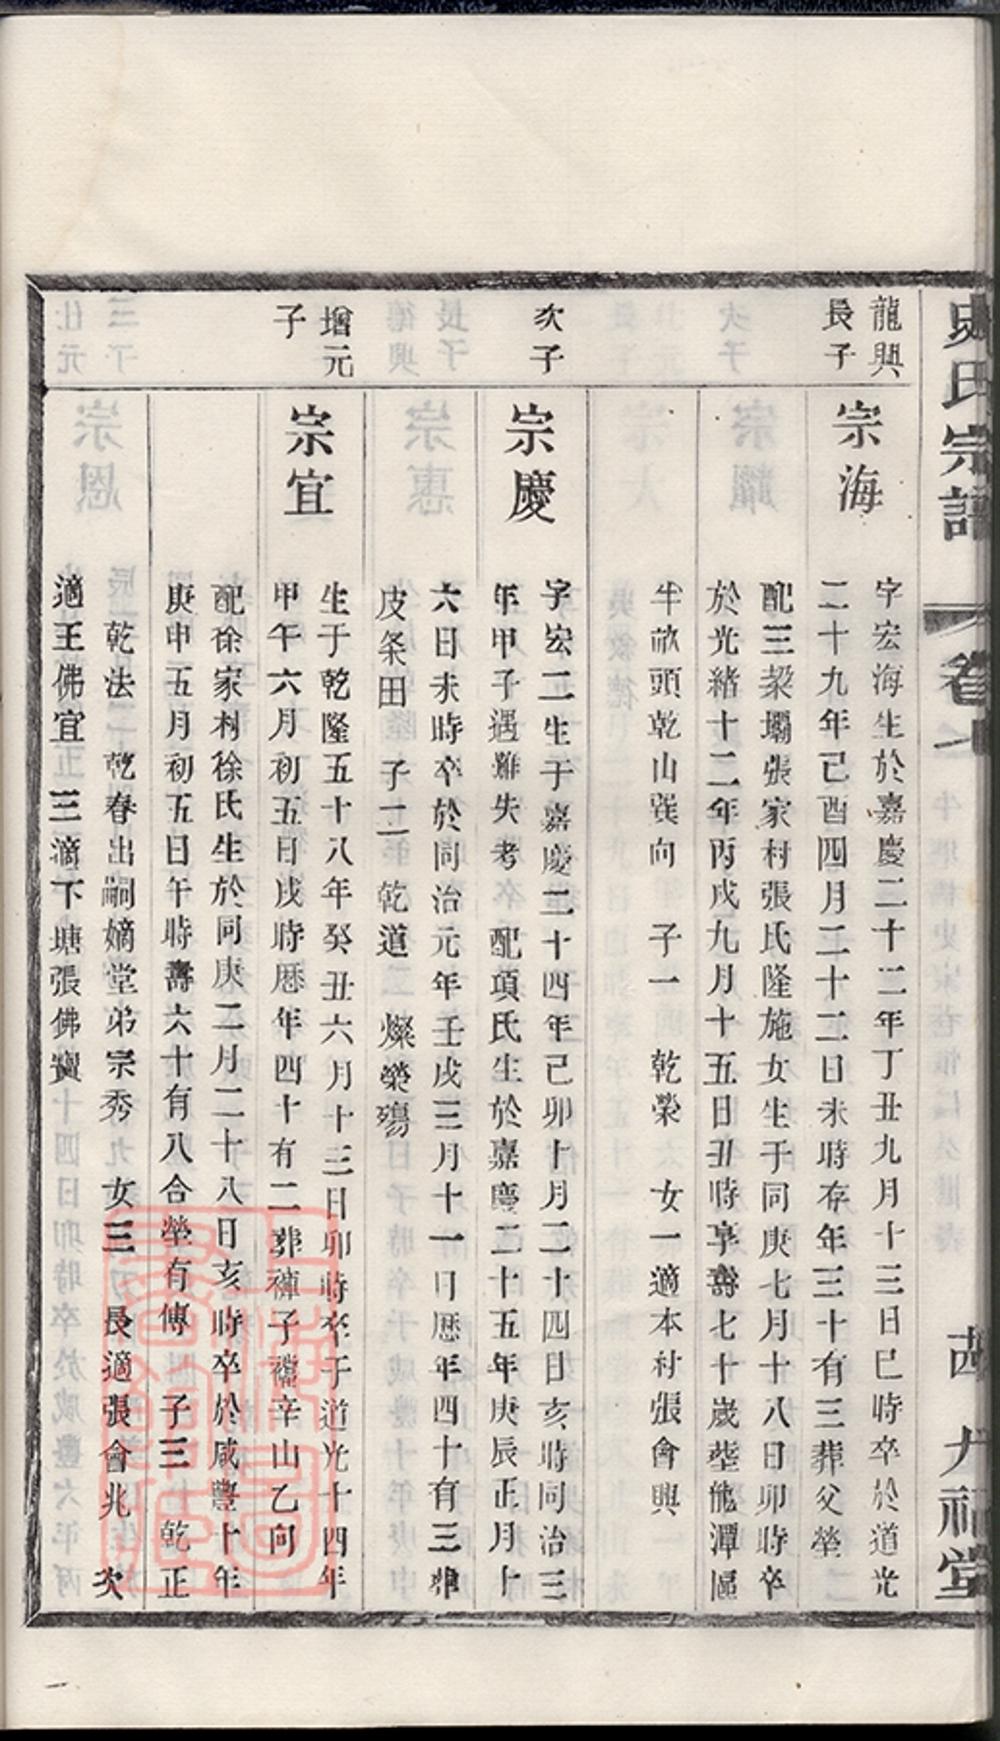 史氏宗譜 卷七
龍興
長子
宗海
字宏海生於嘉慶二十二年丁丑九月十三日巳時卒於道光
二十九年己酉四月二十二日未時存年三十有三葬父塋
配三梁壩張家村張氏隆施女生于同庚七月十八日卯時卒
於光緒十二年丙戌九月十五日丑時享壽七十歲塟他潭區
半畝頭乾山巽向 子一 乾榮 女一適本村張會興
次子
宗慶
字宏二生于嘉慶二十四年己卯十月二十四日亥時同治三
年甲子遇難失考 配項氏生於嘉慶二十五年庚辰正月十
六日未時卒於同治元年壬戌三月十一日歷年四十有三葬
皮条田 子二 乾道 燦榮殤
增元
子
宗宜
生于乾隆五十八年癸丑六月十三日卯時卒于道光十四年
甲午六月初五日戌時歷年四十有二葬褲子襠辛山乙向
配徐家村徐氏生於同庚二月二十八日亥時卒於咸豐十年
庚申五月初五日午時壽六十有八合塋有傳 子三 乾正
乾法 乾春出嗣嫡堂弟宗秀 女三 長適張會兆 次
適王佛宜 三適下塘張佛寶